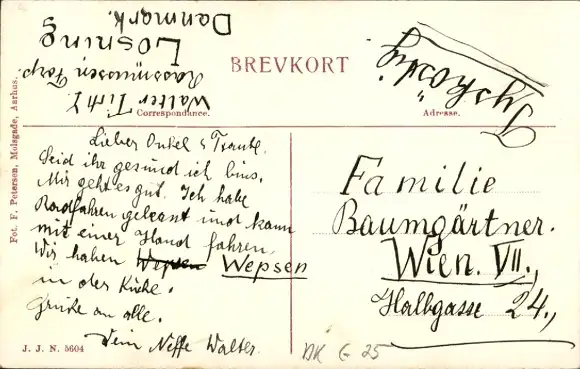 Walter Tirtl
Rasmussen Torp.
Løsning
Danmark.
BREVKORT
Tyskøstrig
Correspondance.
Adresse.
Lieber Onkel & Traute.
Seid ihr gesund ich bins.
Mir geht es gut. Ich habe
Radfahren gelernt und kann
mit einer Hand fahren.
Wir haben Wepsen Wepsen
in der Küche.
Grüße an alle.
Dein Neffe Walter.
Familie
Baumgärtner.
Wien. VII.,
Halbgasse 24.,
DK G 25
Fot. F. Petersen, Molsgade, Aarhus.
J. J. N. 5604